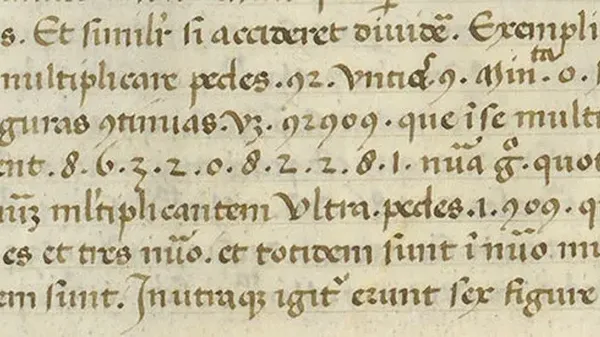 s. Et similr̃ si accideret diuidẽ. Exempli
multiplicare pedes .92. Vntiaꝭ 9. Minᵗᵃ .0.
guras ꝯtinuas. Vꝫ. 92909. que ĩ se multi
ent. 8. 6. 3. 2. 0. 8. 2. 2. 8. 1. nũa g̊. quot
nũꝫ ml̃tiplicantem Vltra. pedes .1. 909. q
es et tres nũo. et totidem sunt ĩ nũo mu
em sunt. In utraqꝫ igit᷑ erunt sex figure